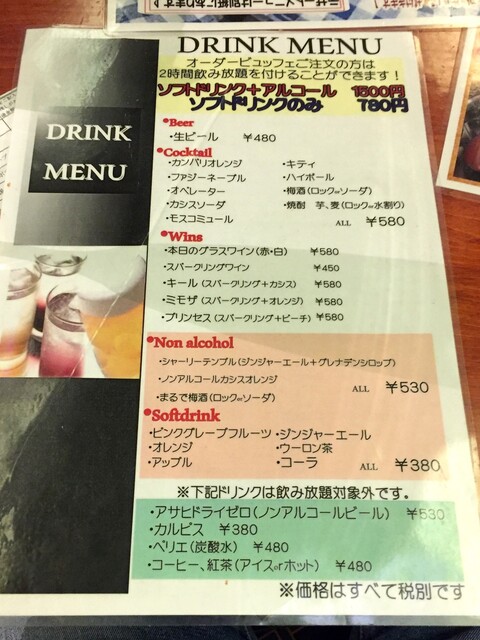 DRINK MENU
オーダービュッフェご注文の方は
2時間飲み放題を付けることができます！
ソフトドリンク＋アルコール 1500円
ソフトドリンクのみ 780円
DRINK
MENU
•Beer
・生ビール ￥480
•Cocktail
・カンパリオレンジ ・キティ
・ファジーネーブル ・ハイボール
・オペレーター ・梅酒（ロックorソーダ）
・カシスソーダ ・焼酎 芋、麦（ロックor水割り）
・モスコミュール ALL ￥580
•Wins
・本日のグラスワイン（赤・白） ￥580
・スパークリングワイン ￥450
・キール（スパークリング＋カシス） ￥580
・ミモザ（スパークリング＋オレンジ） ￥580
・プリンセス（スパークリング＋ピーチ） ￥580
•Non alcohol
・シャーリーテンプル（ジンジャーエール＋グレナデンシロップ）
・ノンアルコールカシスオレンジ
・まるで梅酒（ロックorソーダ） ALL ￥530
•Softdrink
・ピンクグレープフルーツ ・ジンジャーエール
・オレンジ ・ウーロン茶
・アップル ・コーラ ALL ￥380
※下記ドリンクは飲み放題対象外です。
・アサヒドライゼロ（ノンアルコールビール） ￥530
・カルピス ￥380
・ペリエ（炭酸水） ￥480
・コーヒー、紅茶（アイスorホット） ￥480
※価格はすべて税別です